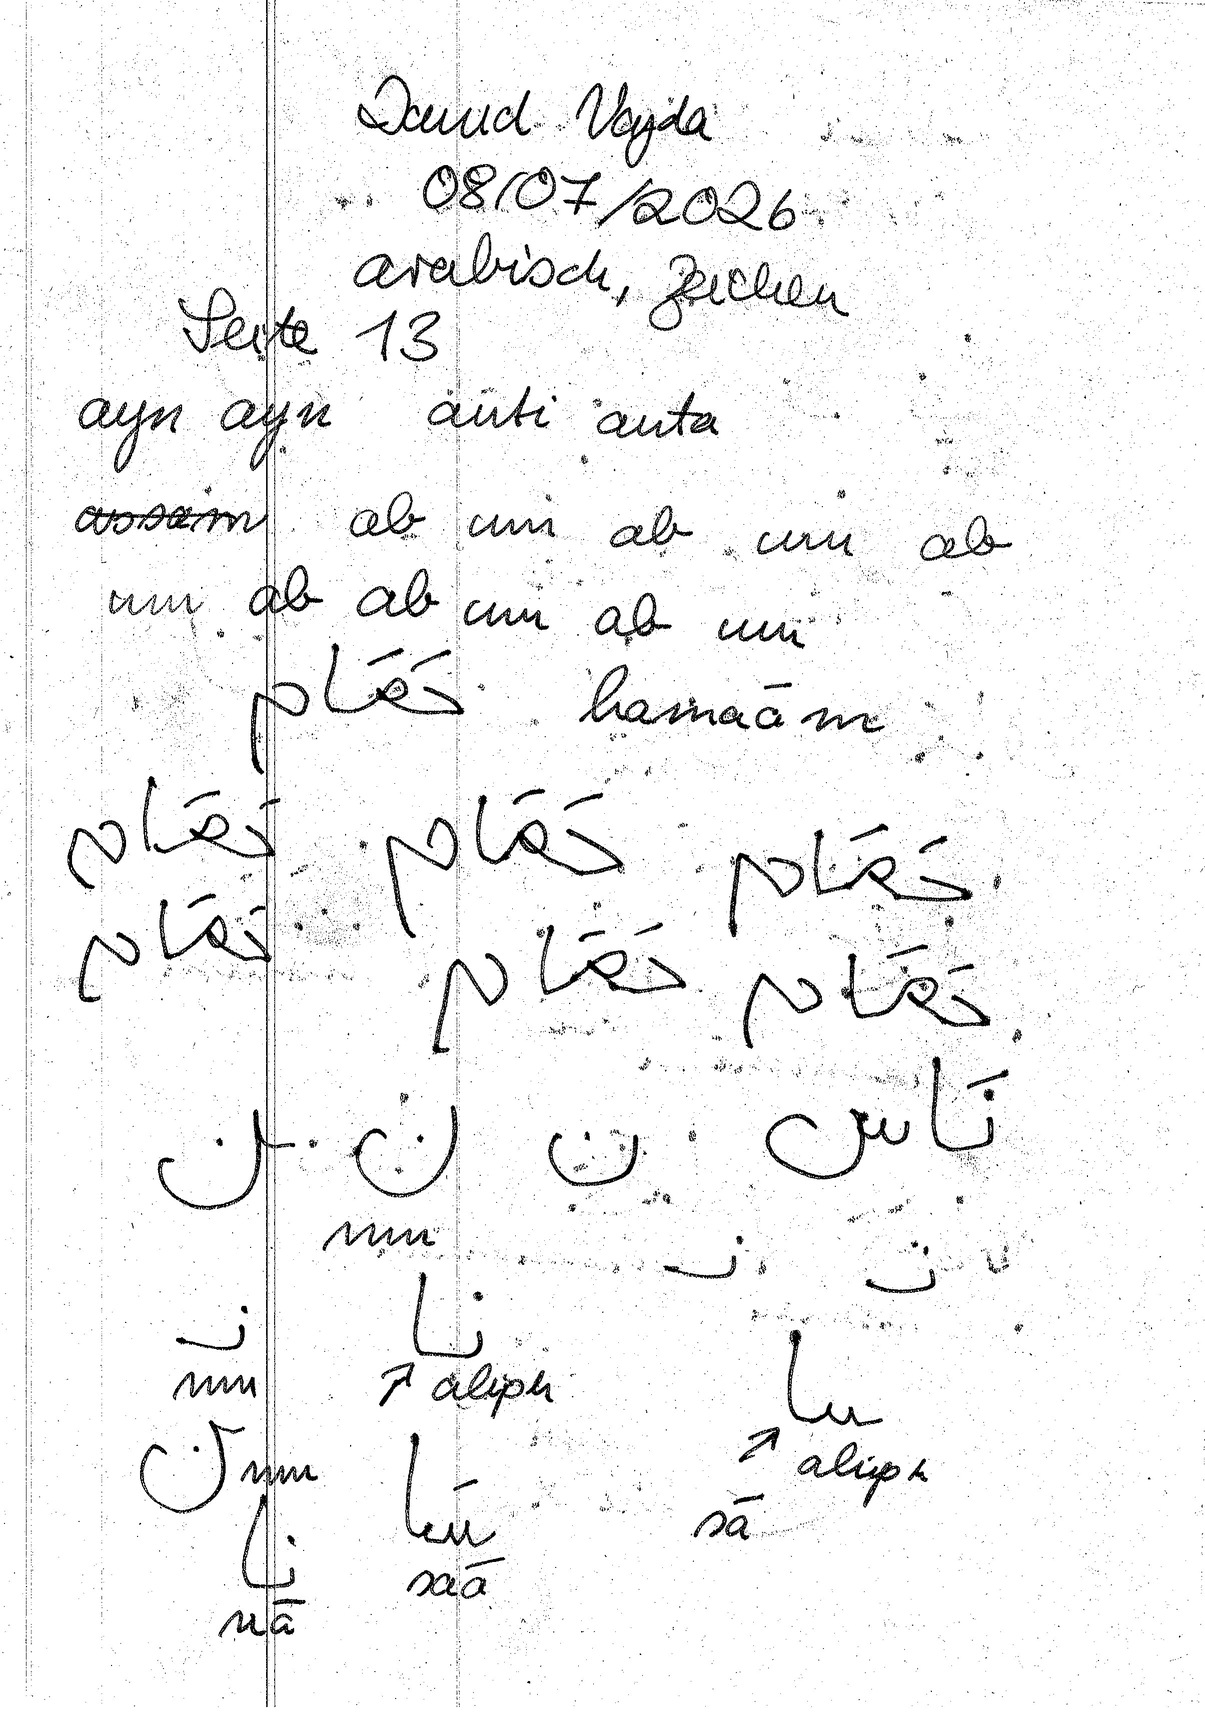 David Vajda
08/07/2026
arabisch, Zeichen
Seite 13
ayn ayn anti anta
assam ab um ab um ab
um ab ab um ab um
حَمَام hamaām
حَمَام حَمَام حَمَام
حَمَام حَمَام حَمَام
نَاس ن ن ـن
nun
نـ نـ
نـ نا
nun ↗ aleph
سا
↗ aleph
ن nun سَا sā
نا saā
nā